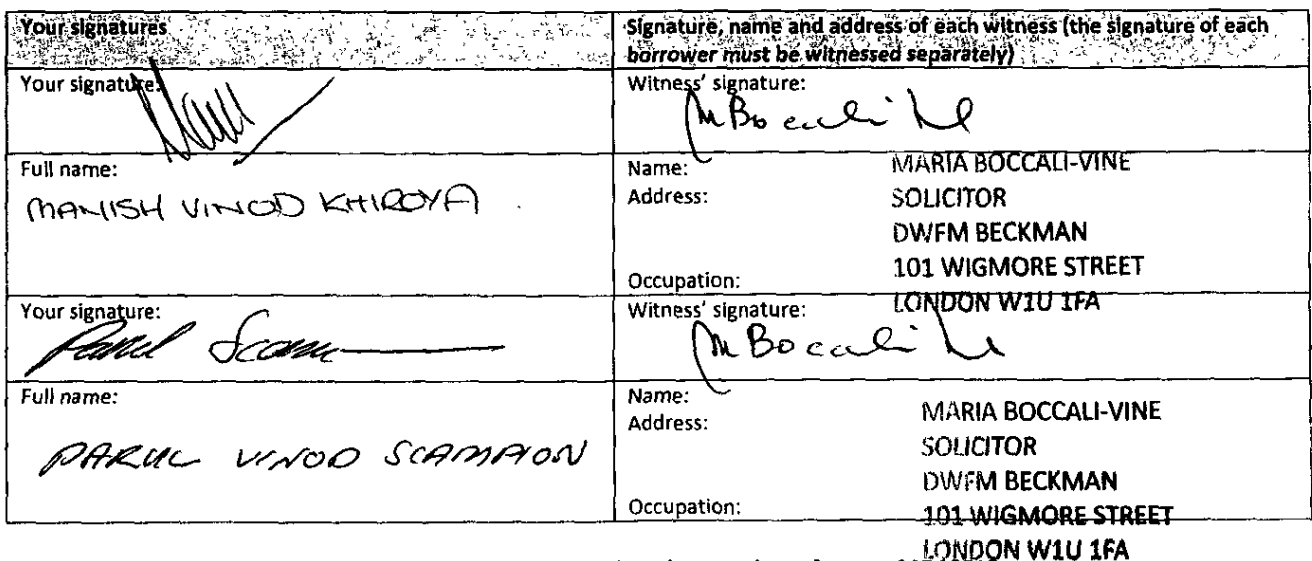 Your signatures
Signature, name and address of each witness (the signature of each
borrower must be witnessed separately)
Your signature:
Witness' signature:
M Boccali
Full name:
MANISH VINOD KHIROYA
Name:
Address:
Occupation:
MARIA BOCCALI-VINE
SOLICITOR
DWFM BECKMAN
101 WIGMORE STREET
LONDON W1U 1FA
Your signature:
Parul Scam
Witness' signature:
M Boccali
Full name:
PARUL VINOD SCAMPION
Name:
Address:
Occupation:
MARIA BOCCALI-VINE
SOLICITOR
DWFM BECKMAN
101 WIGMORE STREET
LONDON W1U 1FA